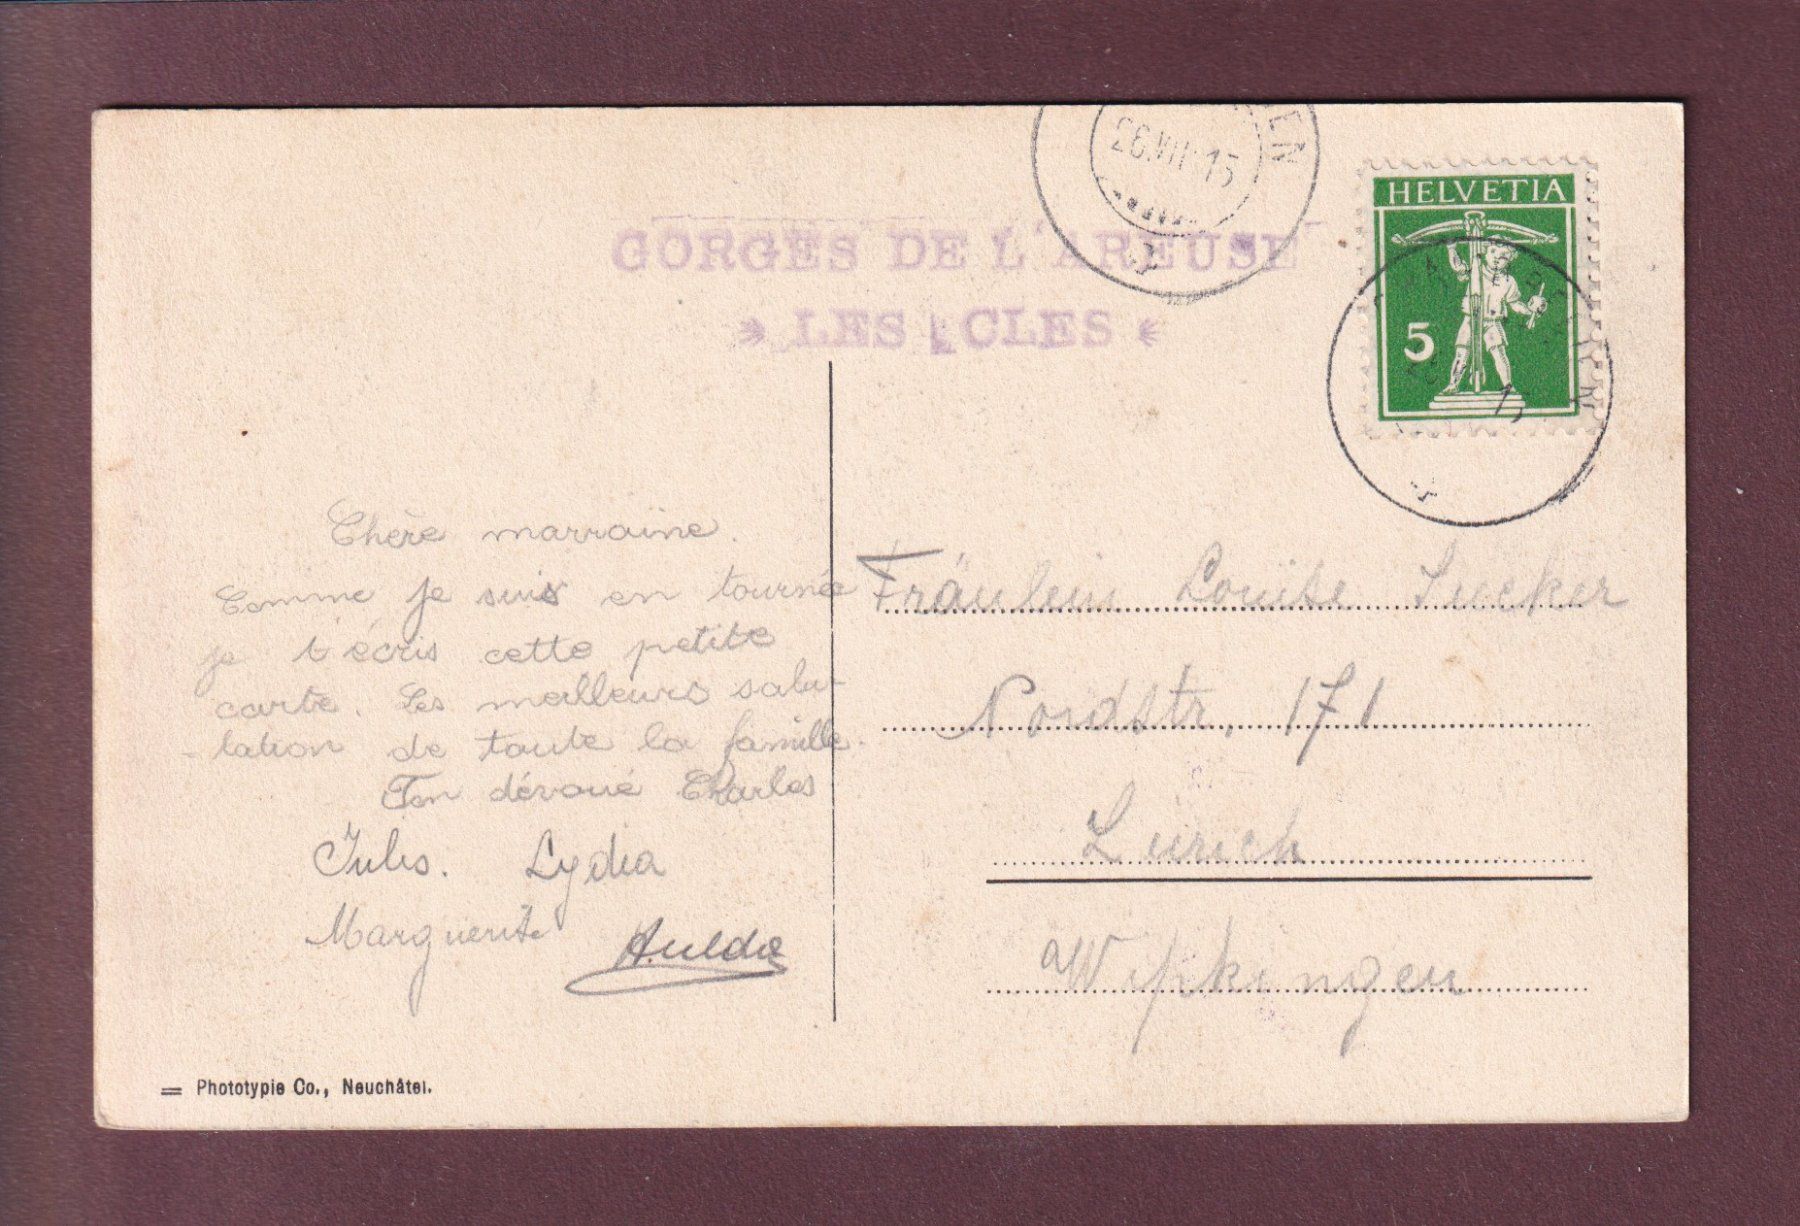 GORGES DE L'AREUSE
LES CLES
26.VII 15
EN
HELVETIA
5
Chère marraine.
Comme je suis en tournée
je t'écris cette petite
carte. Les meilleurs salu-
-tation de toute la famille.
Ton dévoué Charles
Jules. Lydia
Marguerite Hulda
Fräulein Louise
Nordstr. 171
Zürich
Wipkingen
= Phototypie Co., Neuchâtel.